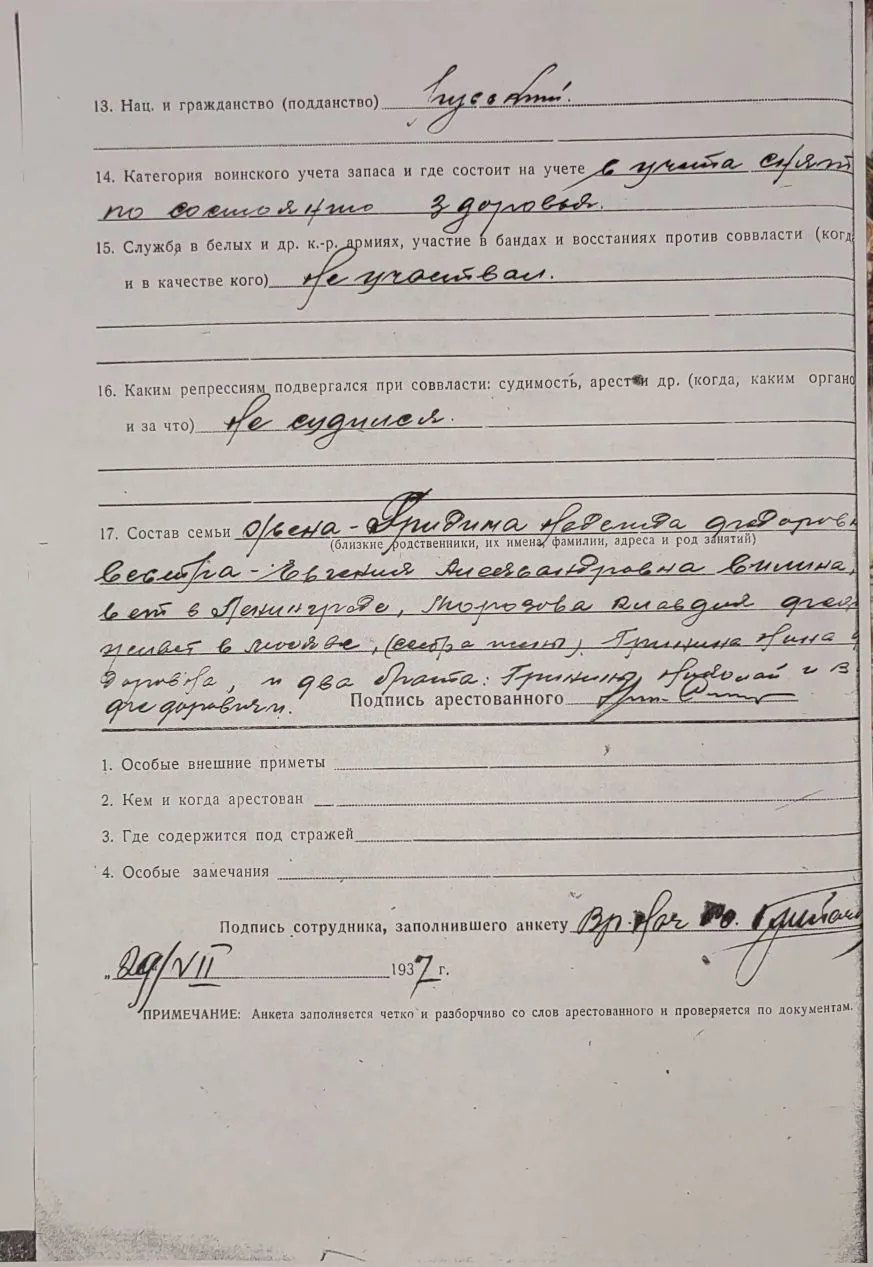 13. Нац. и гражданство (подданство) русский.
14. Категория воинского учета запаса и где состоит на учете с учета снят
по состоянию здоровья.
15. Служба в белых и др. к.-р. армиях, участие в бандах и восстаниях против соввласти (когд
и в качестве кого) Не участвал.
16. Каким репрессиям подвергался при соввласти: судимость, арест и др. (когда, каким орган
и за что) Не судился.
17. Состав семьи жена - Надежда Федоровн
(близкие родственники, их имена, фамилии, адреса и род занятий)
сестра - Евгения Александровна
в Ленинграде, Морозова Клавдия Фед
живет в Москве, (сестра жены). Гринина Нина Ф
доровна, и два брата: Гринины Николай и В
Федоровичи. Подпись арестованного
1. Особые внешние приметы
2. Кем и когда арестован
3. Где содержится под стражей
4. Особые замечания
Подпись сотрудника, заполнившего анкету Вр. Нач
„29/VII 1937 г.
ПРИМЕЧАНИЕ: Анкета заполняется четко и разборчиво со слов арестованного и проверяется по документам.